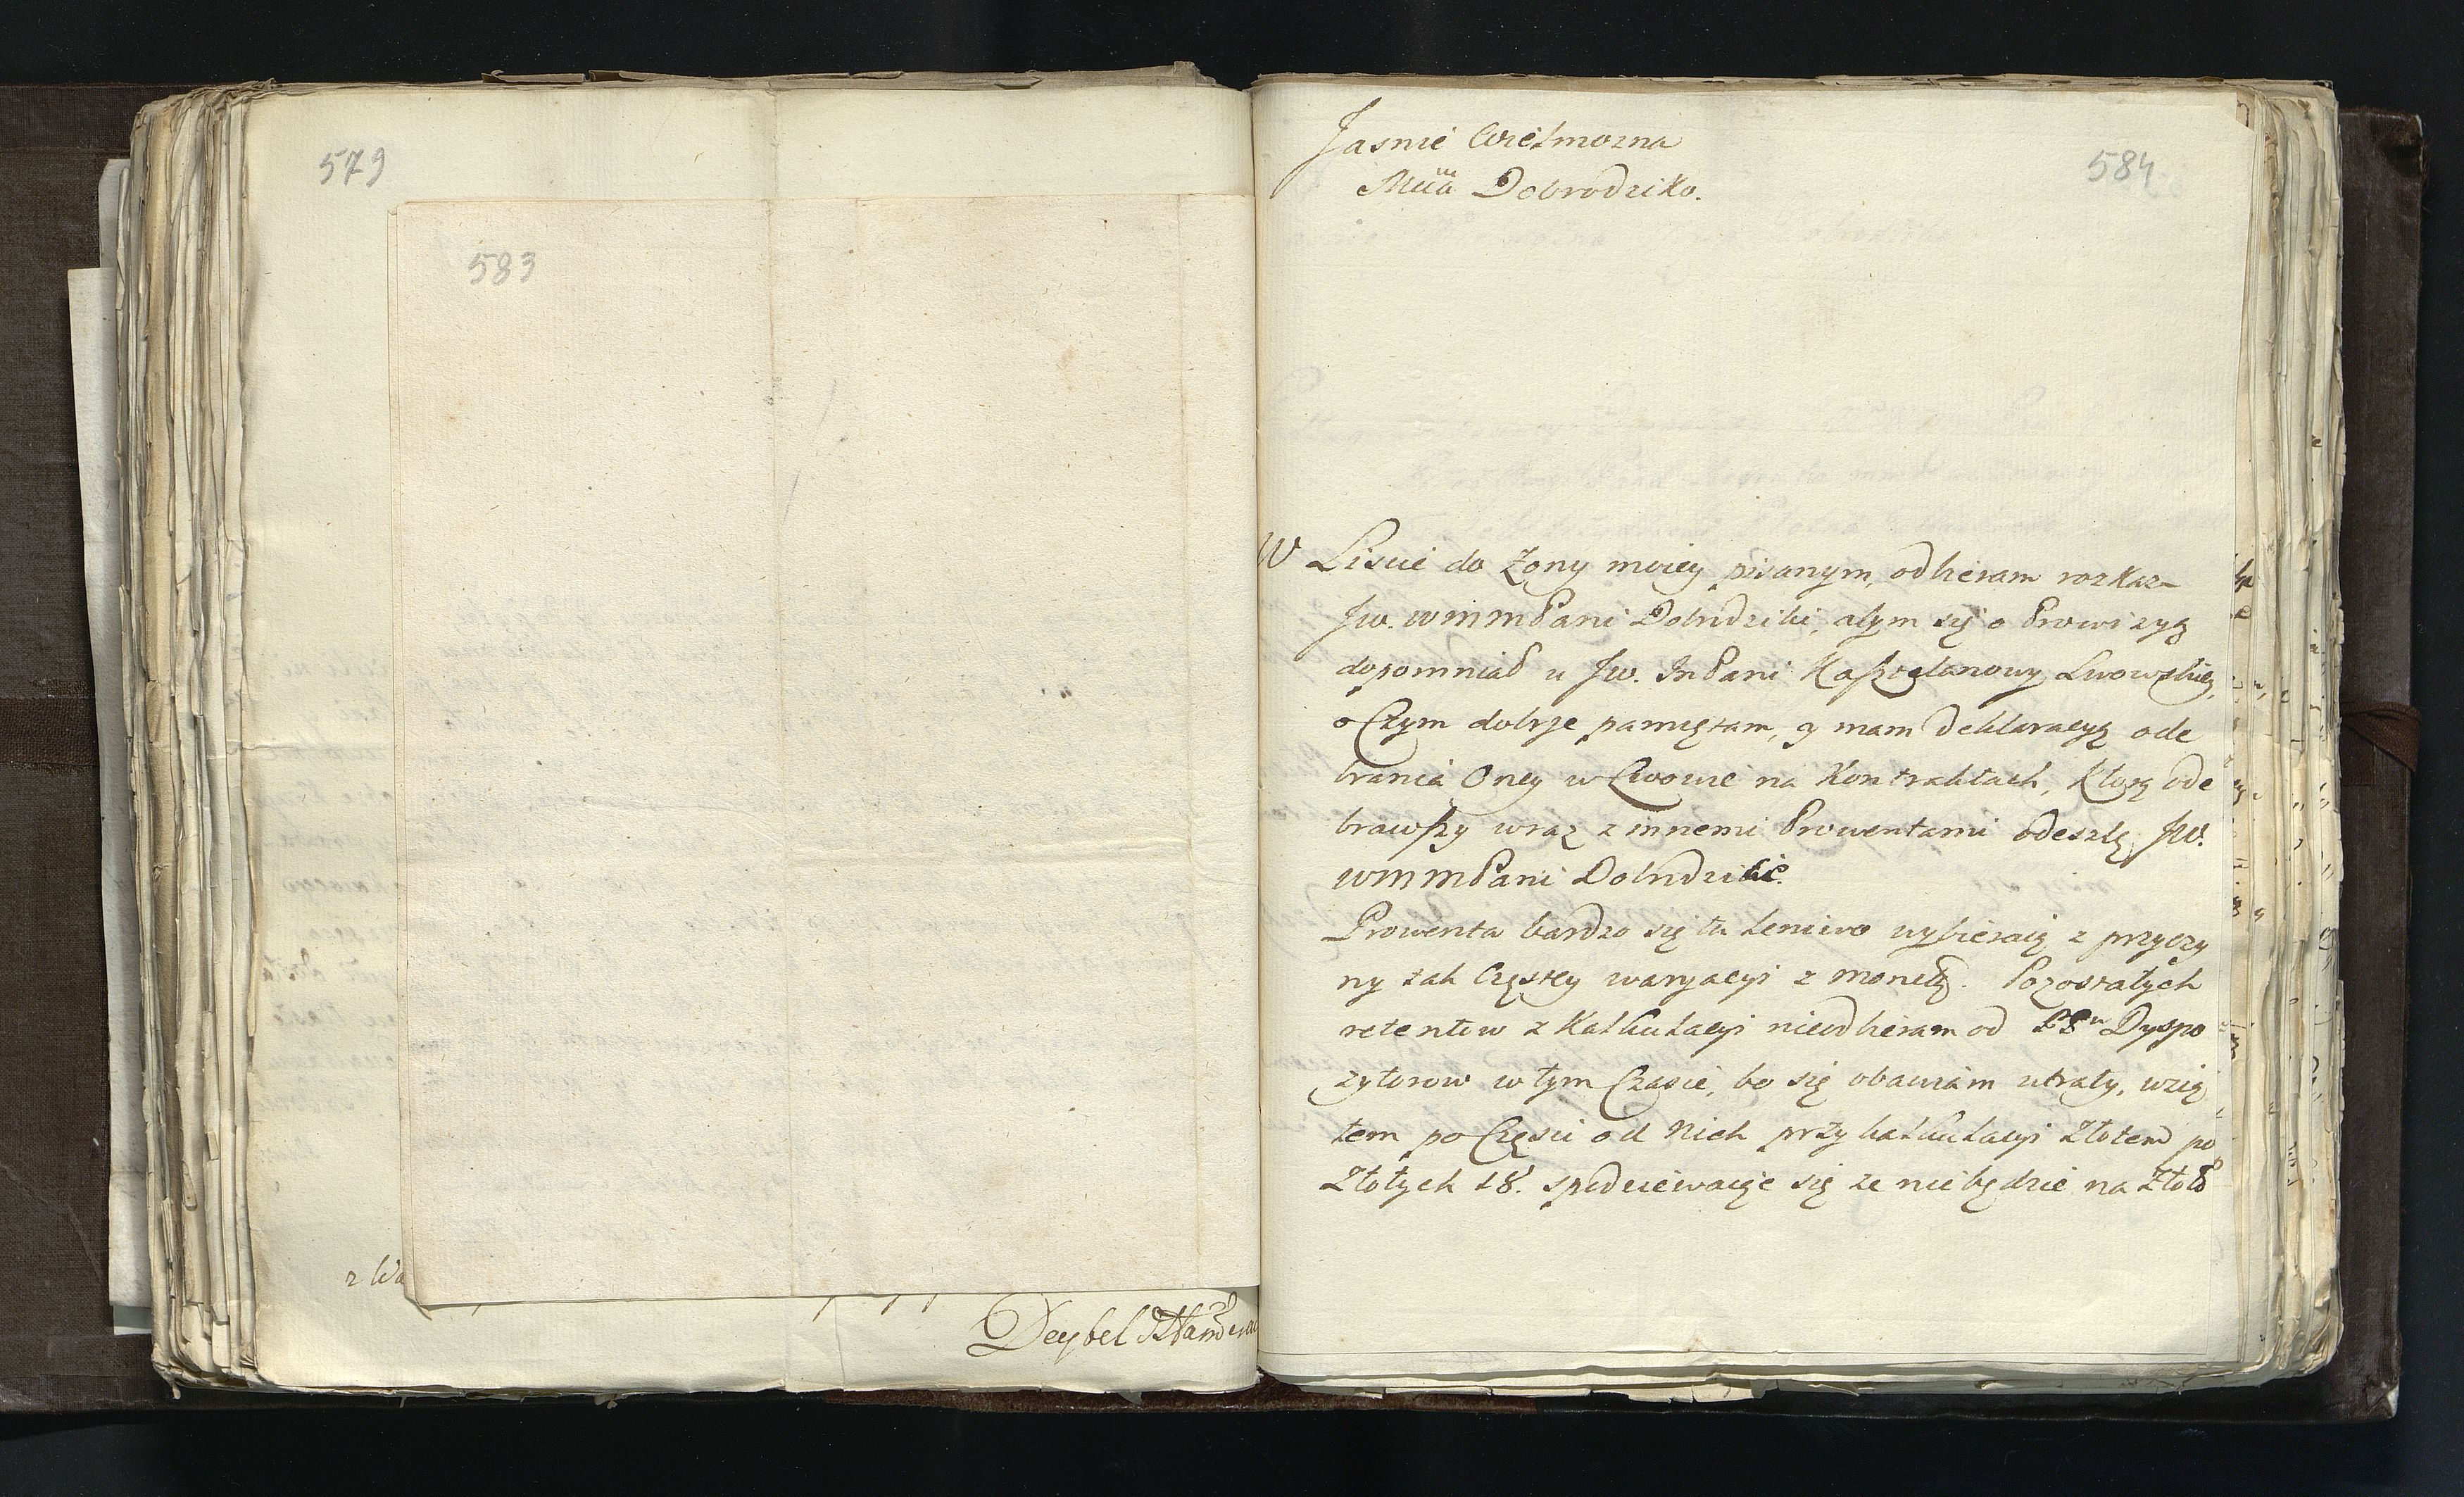 579
583
z Wa
Deybel
584
Jasnie Wielmozna
Mcia Dobrodziko.
W Liscie do Zony moiey pisanym, odbieram rozkaz
Jw. WMMPani Dobrodziki, abym się o Prowizyą
dopomniał u Jw. JmPani Kasztelanowy Lwowskiey,
o Czym dobrze pamiętam, y mam deklaracyą ode
brania Oney w Lwowie na Kontraktach, Ktorą ode
brawszy wraz z innemi Prowentami odeszlę Jw.
WMMPani Dobrodzice.
Prowenta bardzo się tu leniwo wybieraią z przyczy
ny tak Częstey waryacyi z monetą. Pozostałych
retentow z Kalkulacyi nieodbieram od PPw Dyspo
zytorow w tym Czasie, bo się obawiam utraty, wzią
łem po Części od Nich przy kalkulacyi Złotem po
Złotych 18. spodziewaiąc się ze nie będzie na Złoto